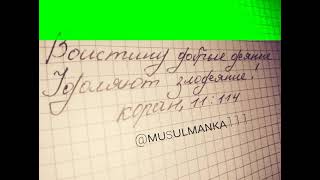 Воистину добрые деяния
Удаляют злодеяние,
коран, 11:114
@MUSULMANKA111